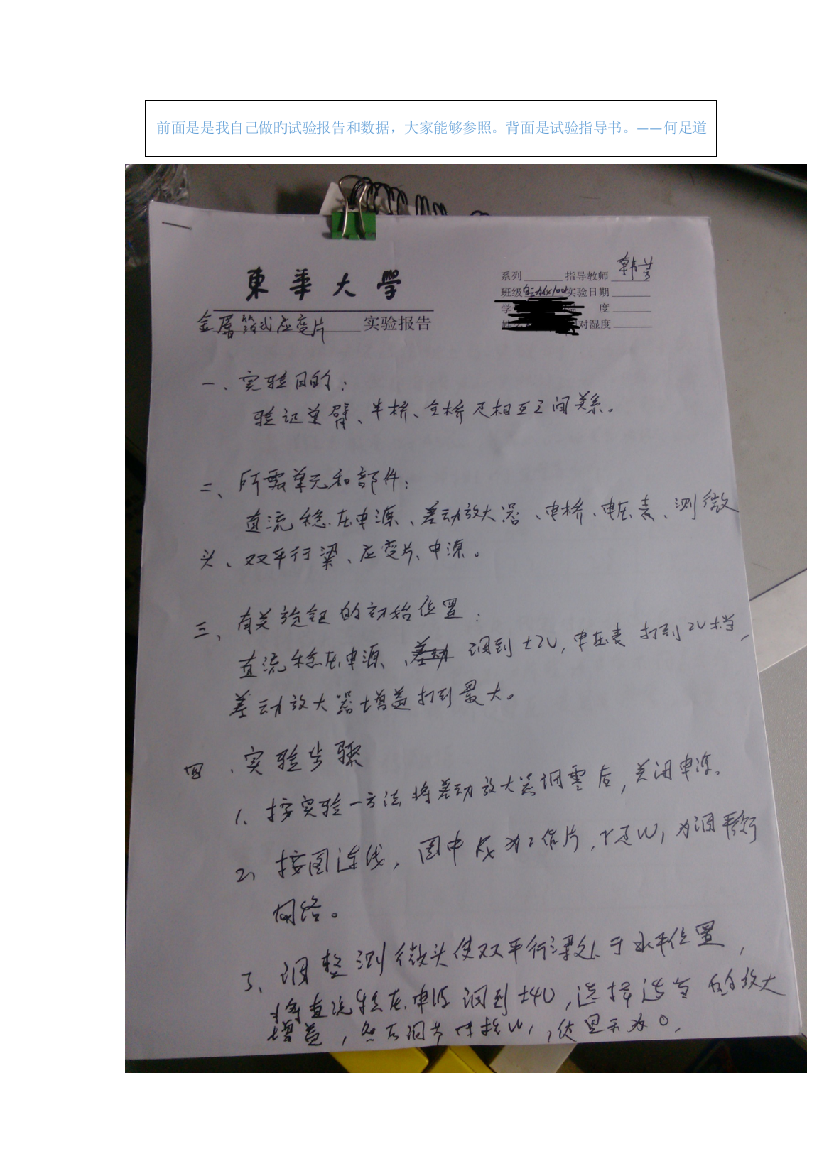 前面是是我自己做旳试验报告和数据，大家能够参照。背面是试验指导书。——何足道
東華大學
系列 指导教师 韩芳
班级 实验日期
学 度
对湿度
金属箔式应变片 实验报告
一、实验目的：
验证单臂、半桥、全桥及相互之间关系。
二、所需单元和部件：
直流稳压电源、差动放大器、电桥、电压表、测微
头、双平行梁、应变片、电源。
三、有关旋钮的初始位置：
直流稳压电源 调到±2V，电压表打到2V档，
差动放大器增益打到最大。
四、实验步骤
1、按实验一方法将差动放大器调零后，关闭电源。
2、按图连线，图中 为工作片， W1为调平衡
网络。
3、调整测微头使双平行梁处于水平位置，
将直流稳压电源调到±4V，选择适当的放大
增益，然后调节 W1， 显示为0，